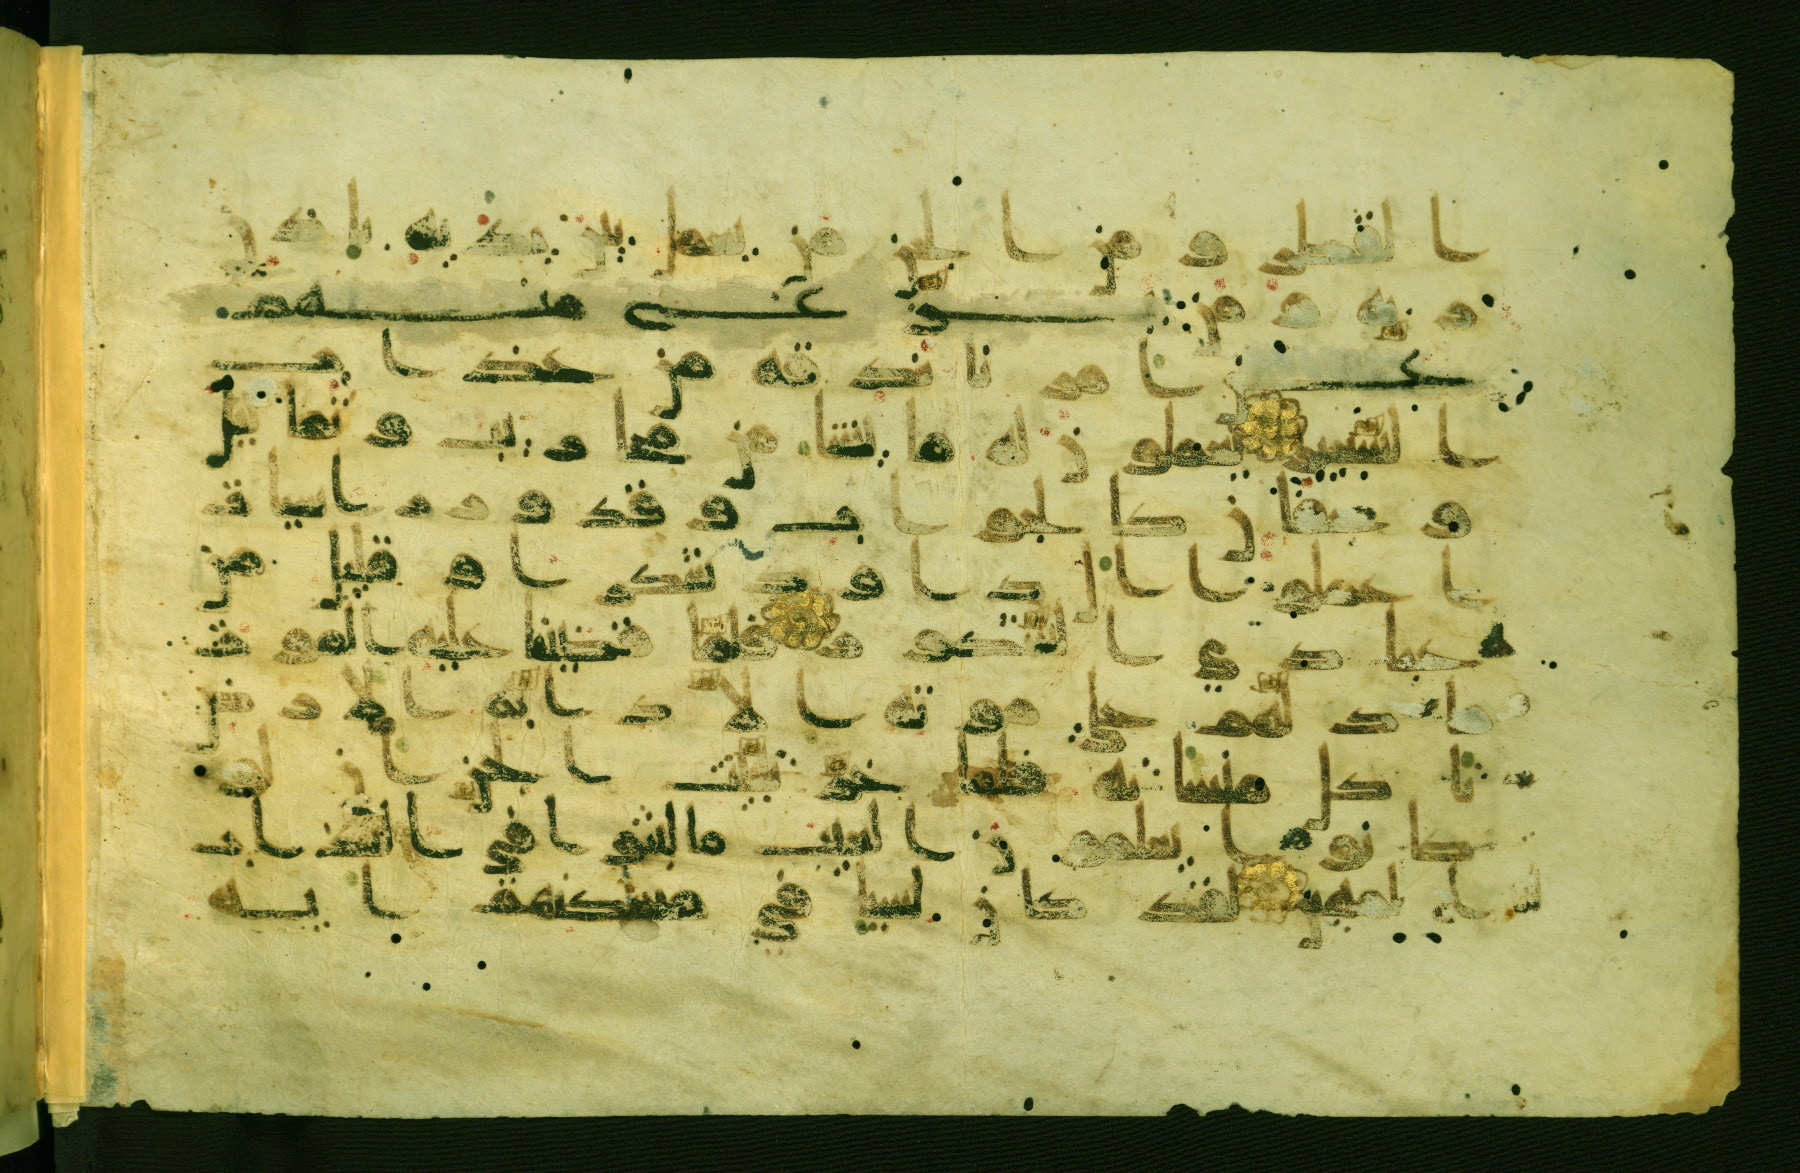 القطر و من الجن من يعمل بين يديه باذن ر
به و من يزغ عن منهم
عن ا مر نا نذقه من عذاب
السعير يعملو ن له ما يشا من محر يب و تمثيل
و جفا ن كا لجو اب و قد و ر ر اسيا ت
ا عملو ا ا ل د ا و د شكر ا و قليل من
عبا د ي ا لشكو ر فلما قضينا عليه المو ت
ما د لهم على مو ته ا لا د ا بة ا لا ر ض
تا كل منسا ته فلما خر تبينت ا لجن ا ن لو
كا نو ا يعلمو ن ا لغيب ما لبثو ا في ا لعذ ا ب
ا لمهين لقد كا ن لسبا في مسكنهم ا يه